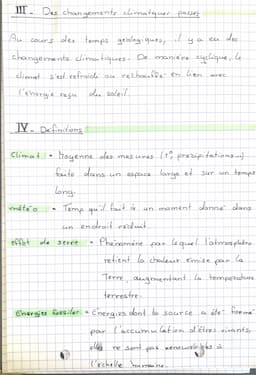 III - Des changements climatiques passés
Au cours des temps géologiques, il y a eu des
changements climatiques. De manière cyclique, le
climat s'est refroidi ou réchauffé en lien avec
l'énergie reçu du soleil.
IV - Définitions
Climat • Moyenne des mesures (t°, précipitations...)
faite dans un espace large et sur un temps
long.
météo • Temp qu'il fait à un moment donné dans
un endroit réduit.
effet de serre • Phénomène par lequel l'atmosphère
retient la chaleur émise par la
Terre, augmentant la température
terrestre.
Energies fossiles • Énergies dont la source a été formé
par l'accumulation d'êtres vivants,
elles ne sont pas renouvelables à
l'échelle humaine.